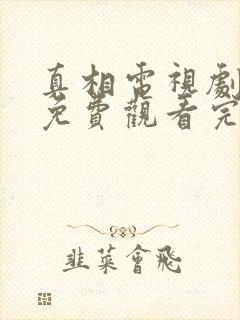 真相電視劇
免費觀看完
韭菜會飛